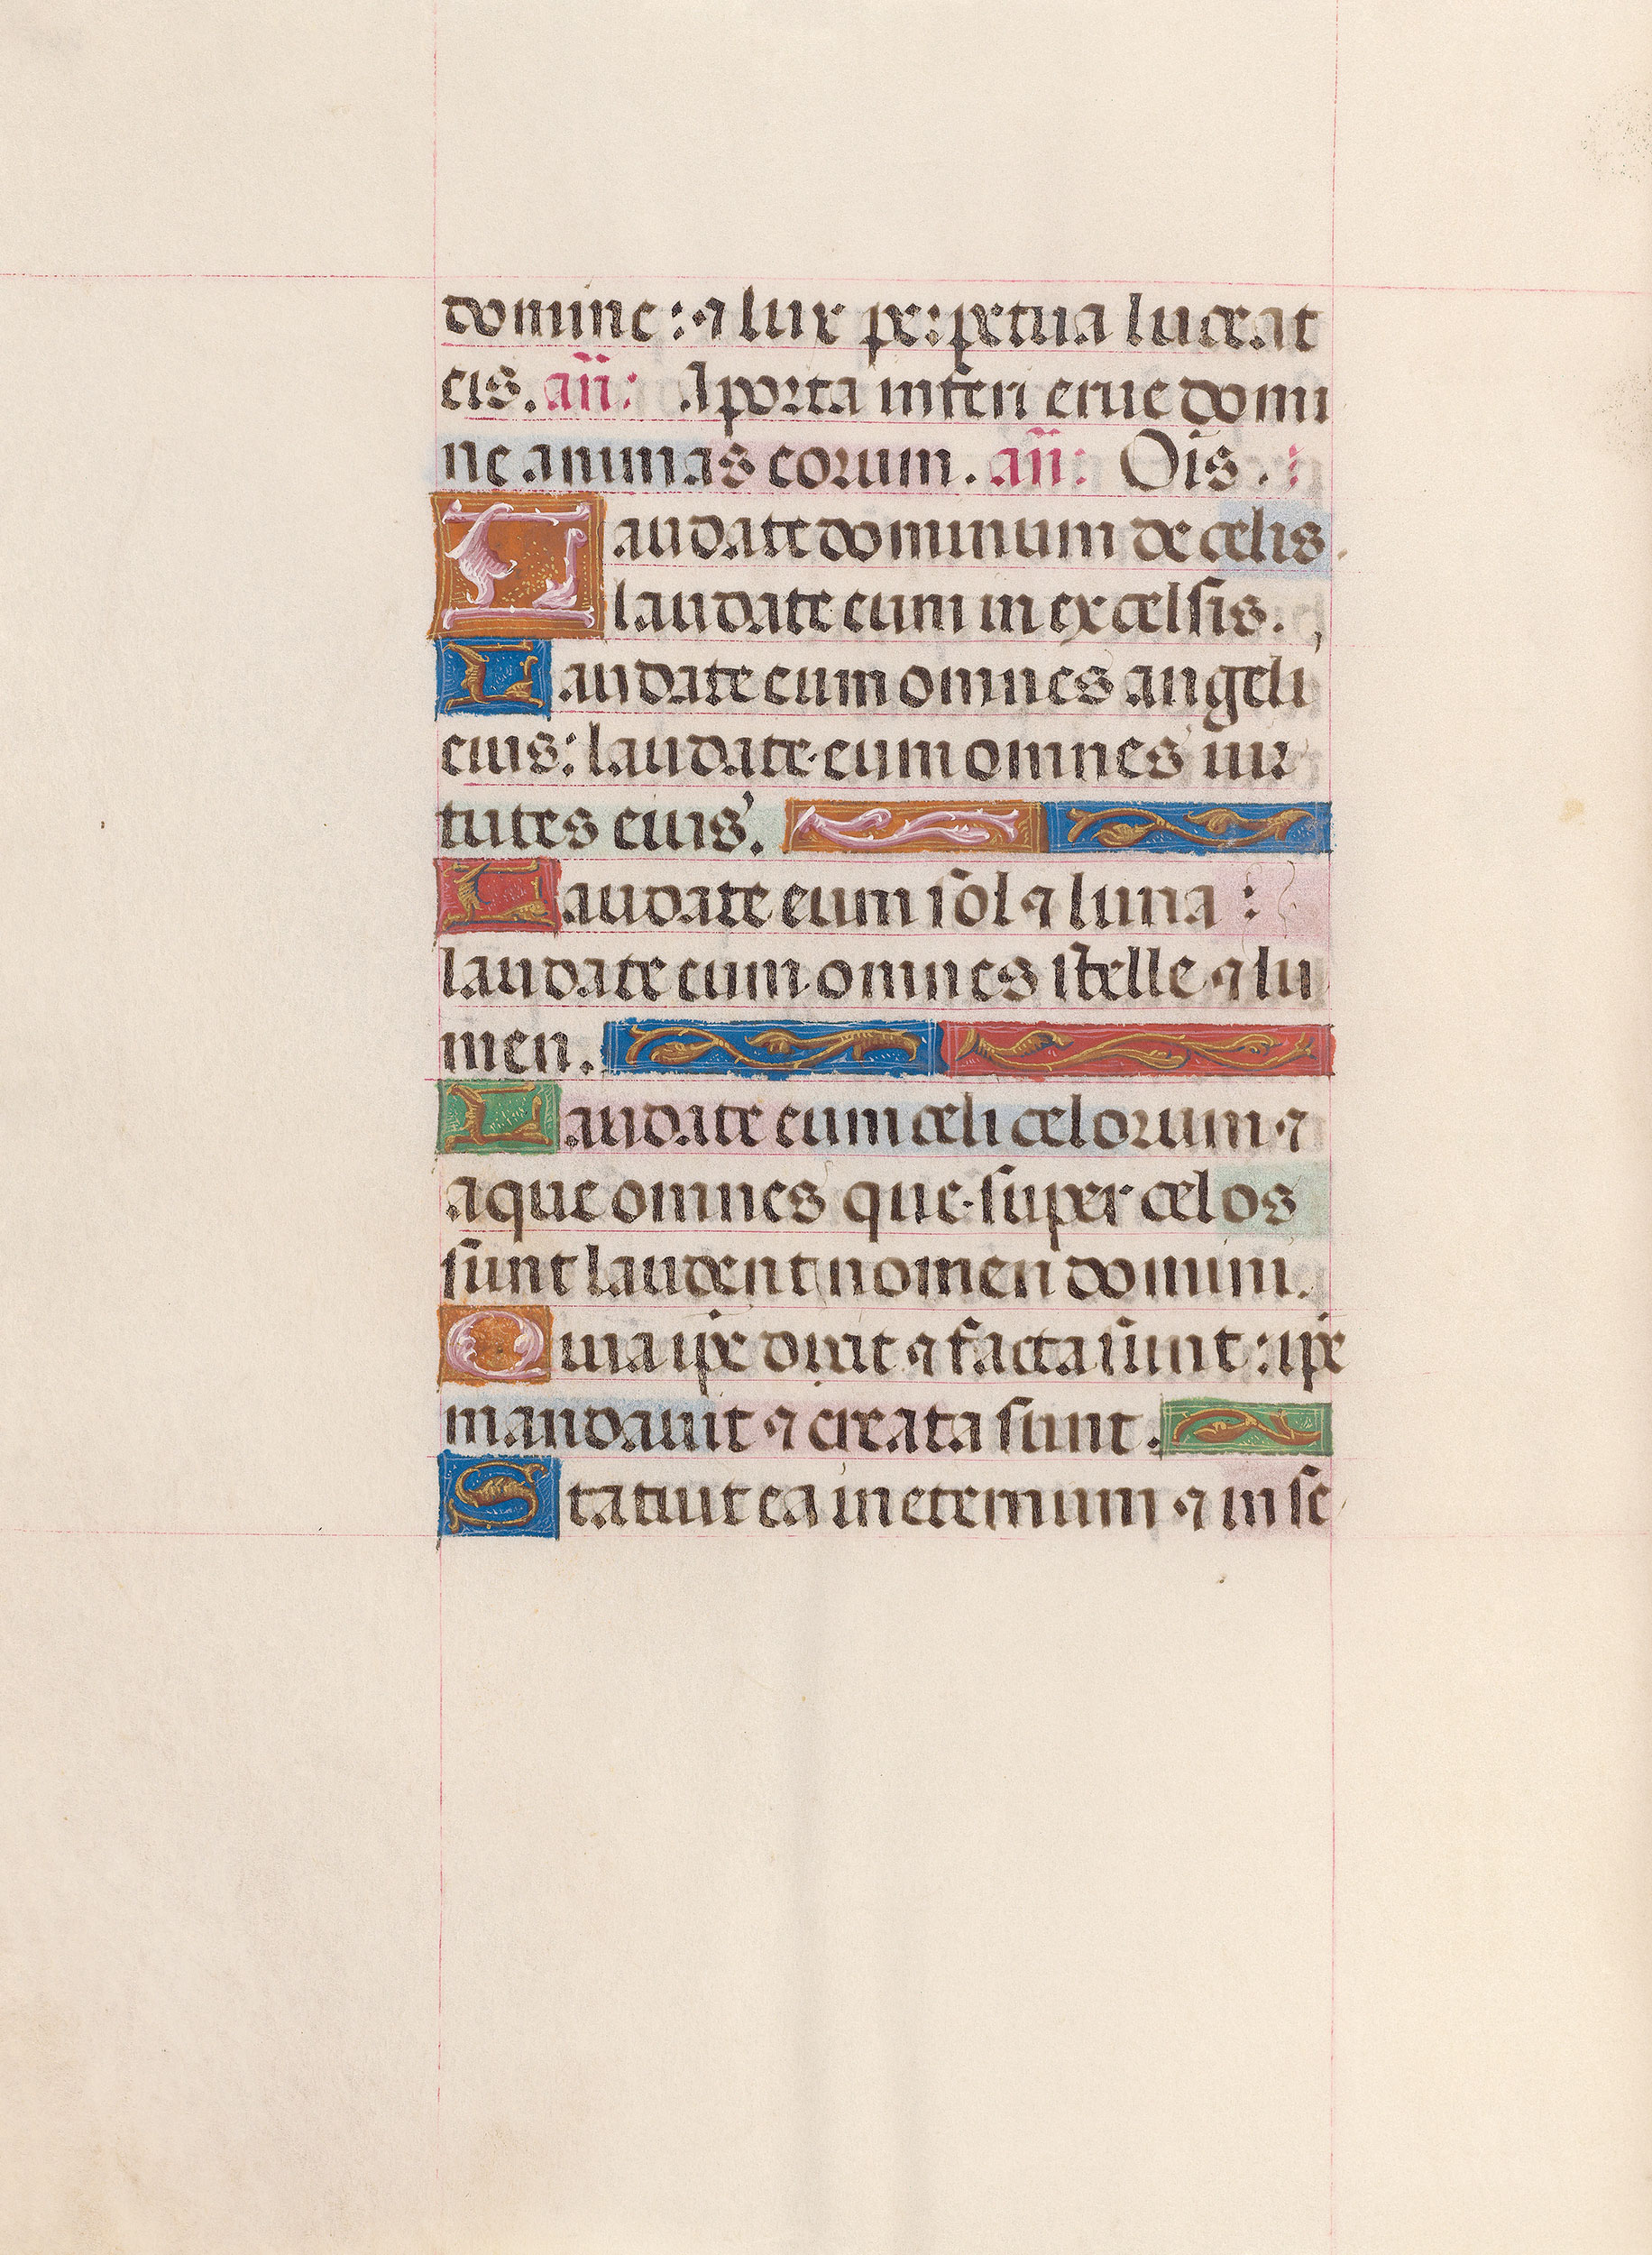 domine: ⁊ lux perpetua luceat
eis. an̄: A porta inferi erue domi
ne animas eorum. an̄: Ois̄.
Laudate dominum de celis.
laudate eum in excelsis.
Laudate eum omnes angeli
eius: laudate eum omnes uir
tutes eius.
Laudate eum sol ⁊ luna:
laudate eum omnes stelle ⁊ lu
men.
Laudate eum celi celorum ⁊
aque omnes que super celos
sunt laudent nomen domini.
Quia ip̄e dixit ⁊ facta sunt: ip̄e
mandauit ⁊ creata sunt.
Statuit ea in eternum ⁊ in se